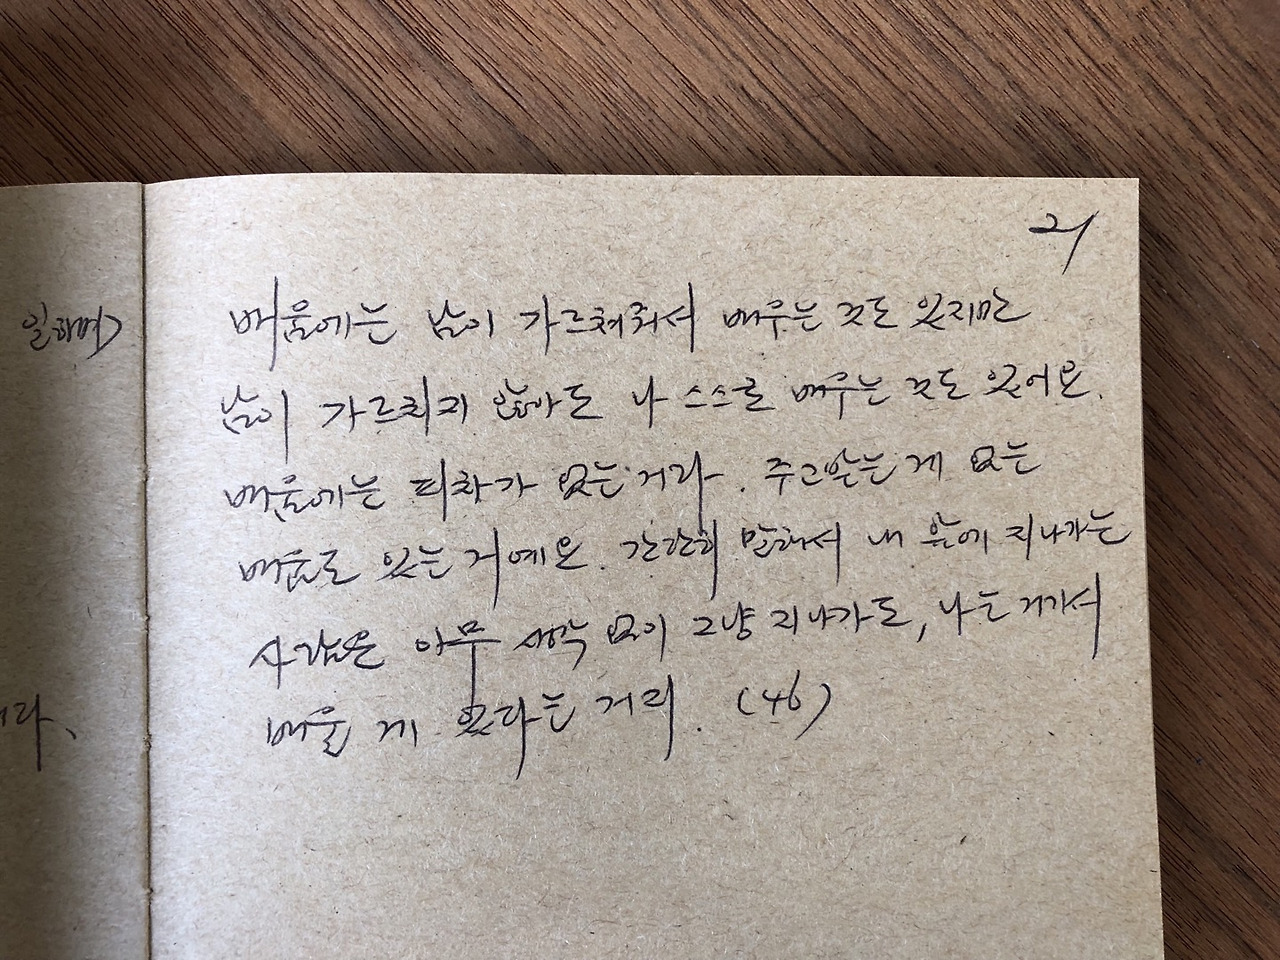 21
일하며
배움에는 남이 가르쳐줘서 배우는 것도 있지만
남이 가르치지 않아도 나 스스로 배우는 것도 있어요.
배움에는 피차가 없는 거라. 주고받는 게 없는
배움도 있는 거예요. 간단히 말해서 내 앞에 지나가는
사람은 아무 생각 없이 그냥 지나가도, 나는 거기서
배울 게 있다는 거리. (46)